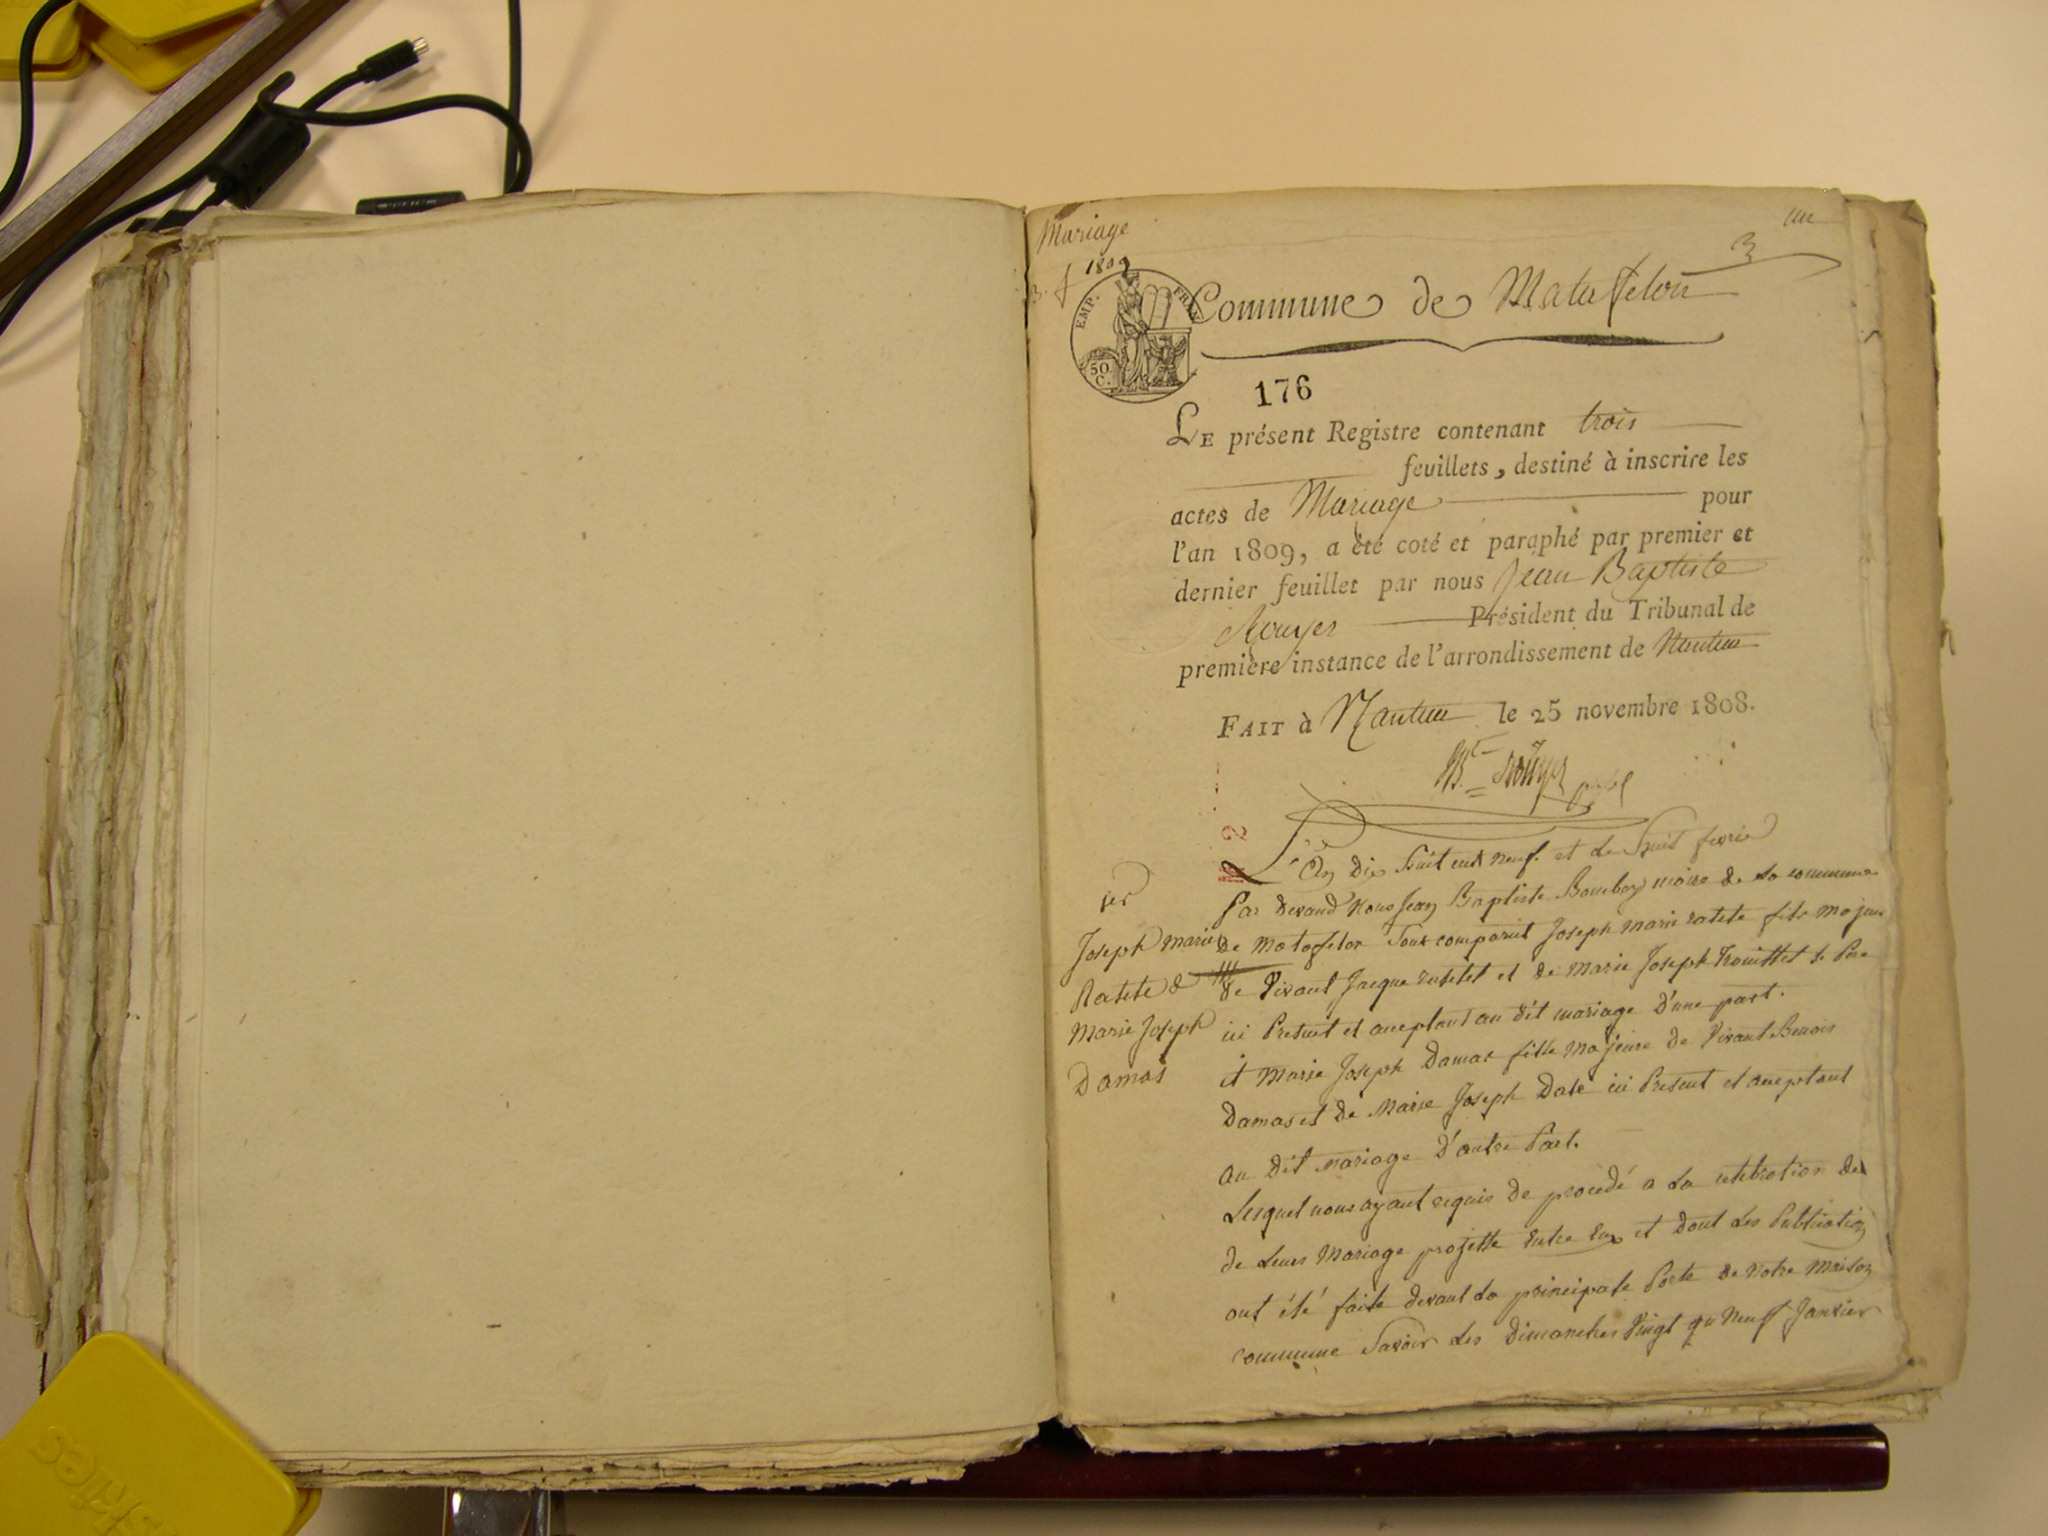 Mariage
1809
un
3
EMP. FRAN
50
C.
Commune de Matafelon
176
LE présent Registre contenant trois
feuillets, destiné à inscrire les
actes de Mariage pour
l'an 1809, a été coté et paraphé par premier et
dernier feuillet par nous Jean Baptiste
Rouyer Président du Tribunal de
première instance de l'arrondissement de Nantua
FAIT à Nantua le 25 novembre 1808.
Bte Rouyer
L'an Dix huit cent neuf et le huit fevrie
Par devand Nous Jean Baptiste Bomboy moire de la commune
de Matafelon Sont comparut Joseph marie ratete fils majeur
de Vivant Jacque ratetet et de Marie Joseph trouillet le Pere
ici Present et aceptant au dit mariage D'une part.
et Marie Joseph Damas fille Majeure de Vivant Benois
Damas et de Marie Joseph Date ici Present et aceptant
au Dit Mariage D'autre Part.
Lesquel nous ayant requis de procedé a La celebration de
de Leurs Mariage projette Entre Eux et Dont Les Publication
ont été faite devant La principale Porte de Notre Maison
commune Savoir Les Dimanches Vingt neuf Janvier
1er
Joseph marie
Ratete &
Marie Joseph
Damas